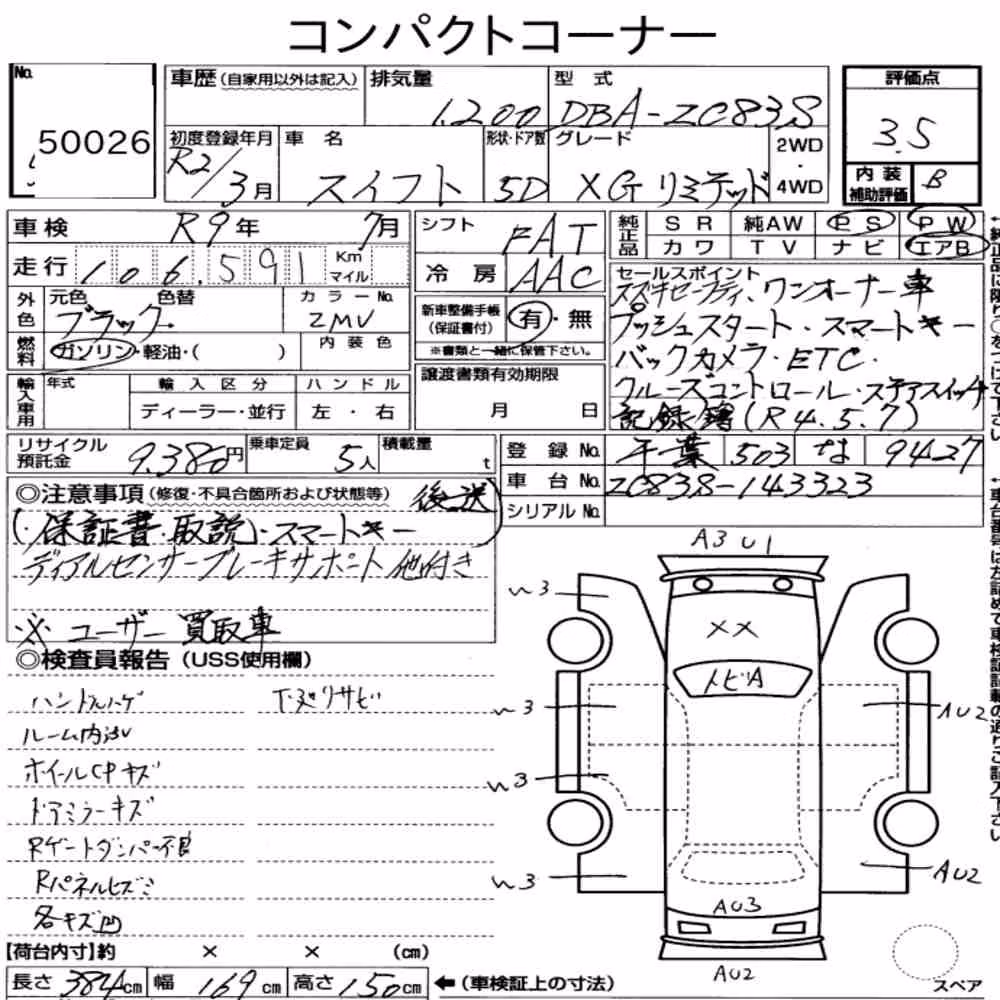 コンパクトコーナー
No. 50026
車歴 (自家用以外は記入) 排気量 1.200 型式 DBA-ZC83S
初度登録年月 R2/3月 車名 スイフト 形状・ドア数 5D グレード XGリミテッド 2WD・4WD
評価点 3.5
内装補助評価 B
車検 R9年 7月
走行 106,591 Km マイル
シフト FAT
冷房 AAC
純正品 SR 純AW PS PW
カワ TV ナビ エアB
外色 元色 色替 ブラック カラーNo. ZMV
燃料 ガソリン・軽油・( ) 内装色
新車整備手帳 (保証書付) 有・無
※書類と一緒に保管下さい。
輸入車用 年式 輸入区分 ハンドル
ディーラー・並行 左・右
譲渡書類有効期限
月 日
セールスポイント
スズキセーフティ、ワンオーナー車
プッシュスタート・スマートキー
バックカメラ・ETC・
クルーズコントロール・ステアスイッチ
記録簿(R4.5.7)
リサイクル預託金 9.380円 乗車定員 5人 積載量 t
登録No. 千葉 503 な 9427
車台No. ZC83S-143323
シリアルNo.
◎注意事項 (修復・不具合箇所および状態等) 後送
(・保証書・取説)・スマートキー
ディアルセンサーブレーキサポート他付き
※ ユーザー買取車
◎検査員報告 (USS使用欄)
ハンドルハゲ 下廻りサビ
ルーム内汚
ホイールCPキズ
ドアミラーキズ
Rゲートダンパー不良
Rパネルヒズミ
各キズ凹
【荷台内寸】約 × × (cm)
長さ 384cm 幅 169cm 高さ 150cm ←(車検証上の寸法)
A3 U1
W3
XX
トビA
W3
AU2
W3
W3
AU2
AU3
AU2
スペア